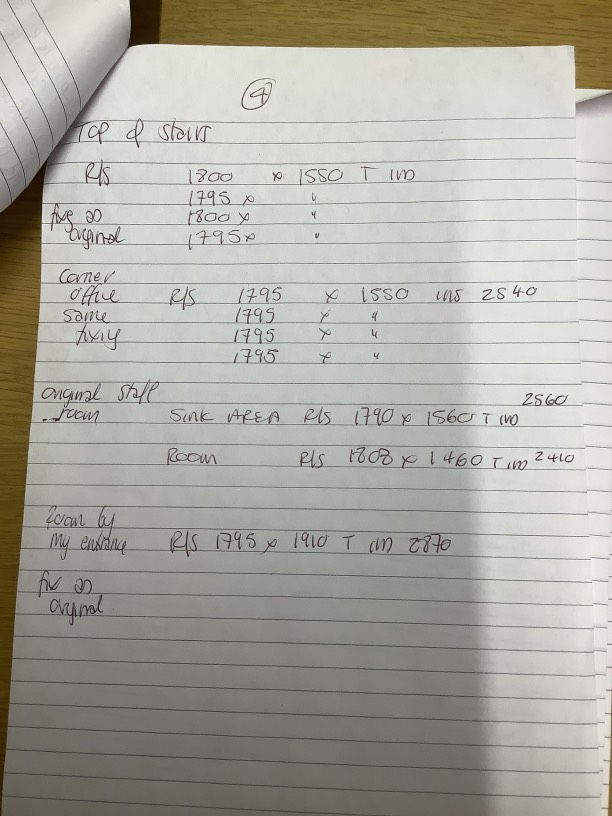 4
Top of stairs
R/S 1800 x 1550 T in
1795 x "
fix as 1800 x "
original 1795 x "
Corner
office R/S 1795 x 1550 ins 2840
same 1795 x "
fixing 1795 x "
1795 x "
original staff 2560
room SINK AREA R/S 1790 x 1560 T in
Room R/S 1808 x 1460 T in 2410
Room by
my entrance R/S 1795 x 1910 T in 2870
fix as
original